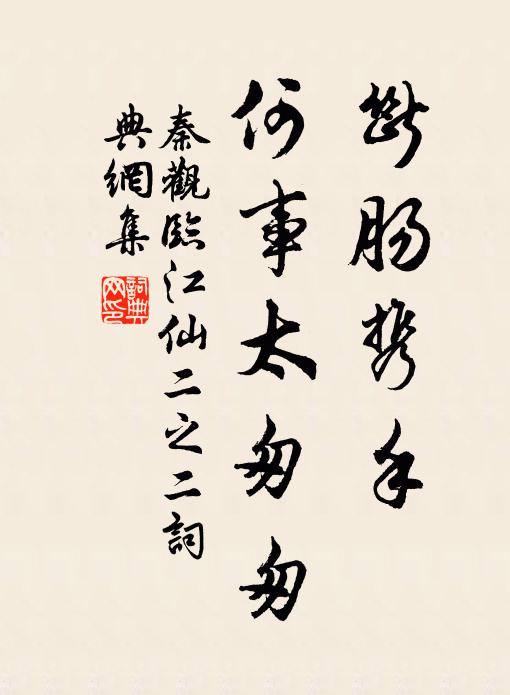 斷肠携手
何事太匆匆
秦觀臨江仙二之二詞
典網集
詞典網印